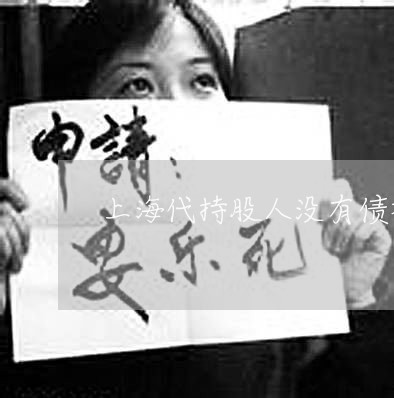 申請：
上海代持股人没有债
安乐死